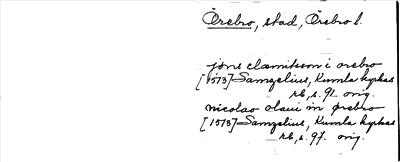 Örebro, stad, Örebro l.
jöns clæmitsson i orebro
[1573] Samzelius, Kumla kyrkas
rb, s. 91 orig.
nicolao olaui in ørebro
[1573] Samzelius, Kumla kyrkas
rb, s. 97. orig.